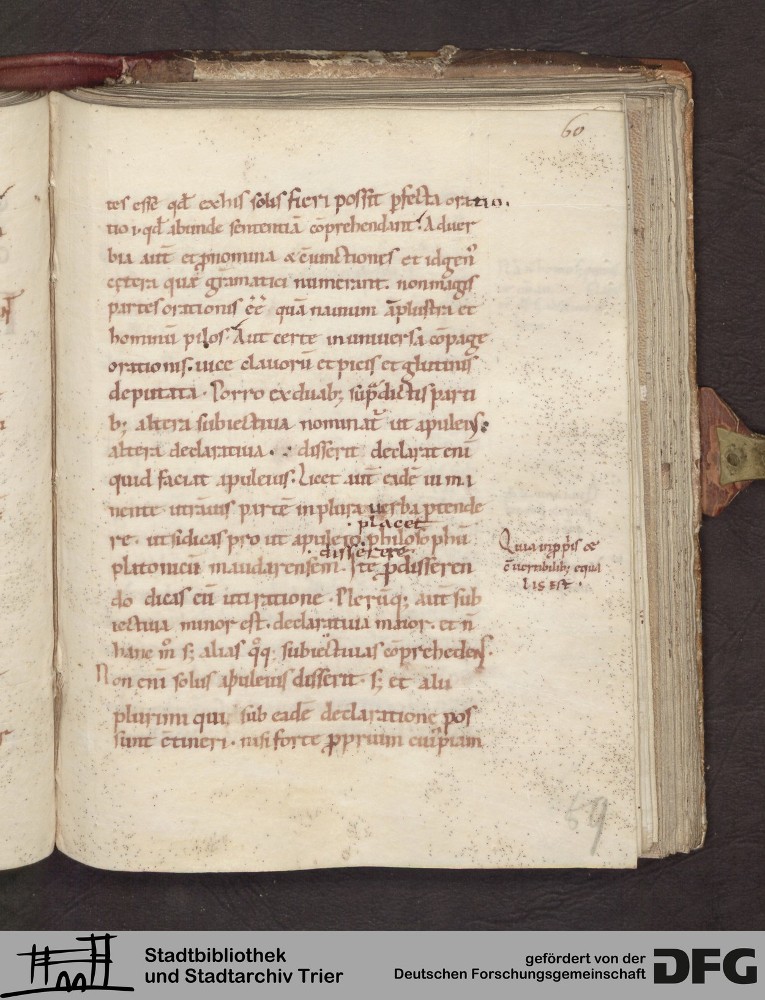 60
tes esse qd̄ exhis solis fieri possit ꝑfecta oratio.
tio ꝛ qd̄ abunde sententiā cōprehendant. Aduer
bia aut̄ et ꝓnomina & c̄iunctiones et idgen̄
cetera quę grāmatici numerant. nonmagis
partes orationis cē̄ quā nauium āplustra et
hominū pilos. Aut certe inuniuersa cōpage
orationis. uice clauorū et picis et glutinis
deputata. Porro exduab; sup̄dictis parti
b; altera subiectiua nominat̄ ut apuleius.
altera declaratiua. disserit declarat eni
quid faciat apuleius. Licet aut̄ eadē uma
nente utrāuis partē inplura uerba ꝓtende
placet
re. utsidicas pro ut apuleio philosophū
disserere
platonicū maudarensem. Ite ꝓdisseren
do dicas eū utiratione. Plerūq; aut̄ sub
iectiua minor est. declaratiua maior. et n̄
hanc m̊ s; alias q̊q; subiectiuas cōprehedens.
Non eni solus apuleius disserit. s; et alii
plurimi qui sub eadē declaratione pos
sunt c̄tineri. nisi forte ꝓprium cuip̄iam
Quia inꝓp̄is &
c̄uertibilib; equa
lis est.
59
Stadtbibliothek
und Stadtarchiv Trier
gefördert von der
Deutschen Forschungsgemeinschaft
DFG